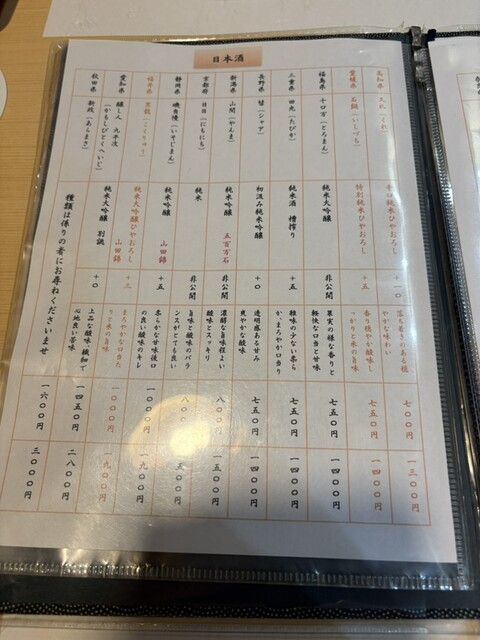 日本酒
高知県 久礼(くれ) 辛口純米ひやおろし +一〇 落ち着きのある穏やかな味わい 七〇〇円 一三〇〇円
愛媛県 石鎚(いしづち) 特別純米ひやおろし +五 香り穏やか酸味しっかりと米の旨味 七五〇円 一四〇〇円
福島県 十ロ万(とろまん) 純米大吟醸 非公開 果実の様な香りと軽快な口当と甘味 七五〇円 一四〇〇円
三重県 田光(たびか) 純米酒 槽搾り +五 雑味の少ない柔らか、まろやか口当り 七五〇円 一四〇〇円
長野県 髭(シャア) 初汲み純米吟醸 +〇 透明感ある甘み爽やかな酸味 七五〇円 一四〇〇円
新潟県 山間(やんま) 純米吟醸 五百万石 非公開 濃醇な旨味程よい酸味とスッキリ 八〇〇円 一五〇〇円
京都府 日日(にちにち) 純米 非公開 旨味と酸味のバランスがとても良い 八〇 五〇〇円
静岡県 磯自慢(いそじまん) 純米吟醸 山田錦 +五 柔らかな甘味後口の良い酸味のキレ 一〇〇〇円 一九〇〇円
福井県 黒龍(こくりゅう) 純米大吟醸ひやおろし 山田錦 +三 まろやかな口当たりと米の旨味 一〇〇〇円 一九〇〇円
愛知県 醸し人 九平次(かもしびとくへいじ) 純米大吟醸 別誂 +〇 上品な酸味、繊細で心地良い苦味 一四五〇円 二八〇〇円
秋田県 新政(あらまさ) 種類は係りの者にお尋ねくださいませ 一六〇〇円 三〇〇〇円